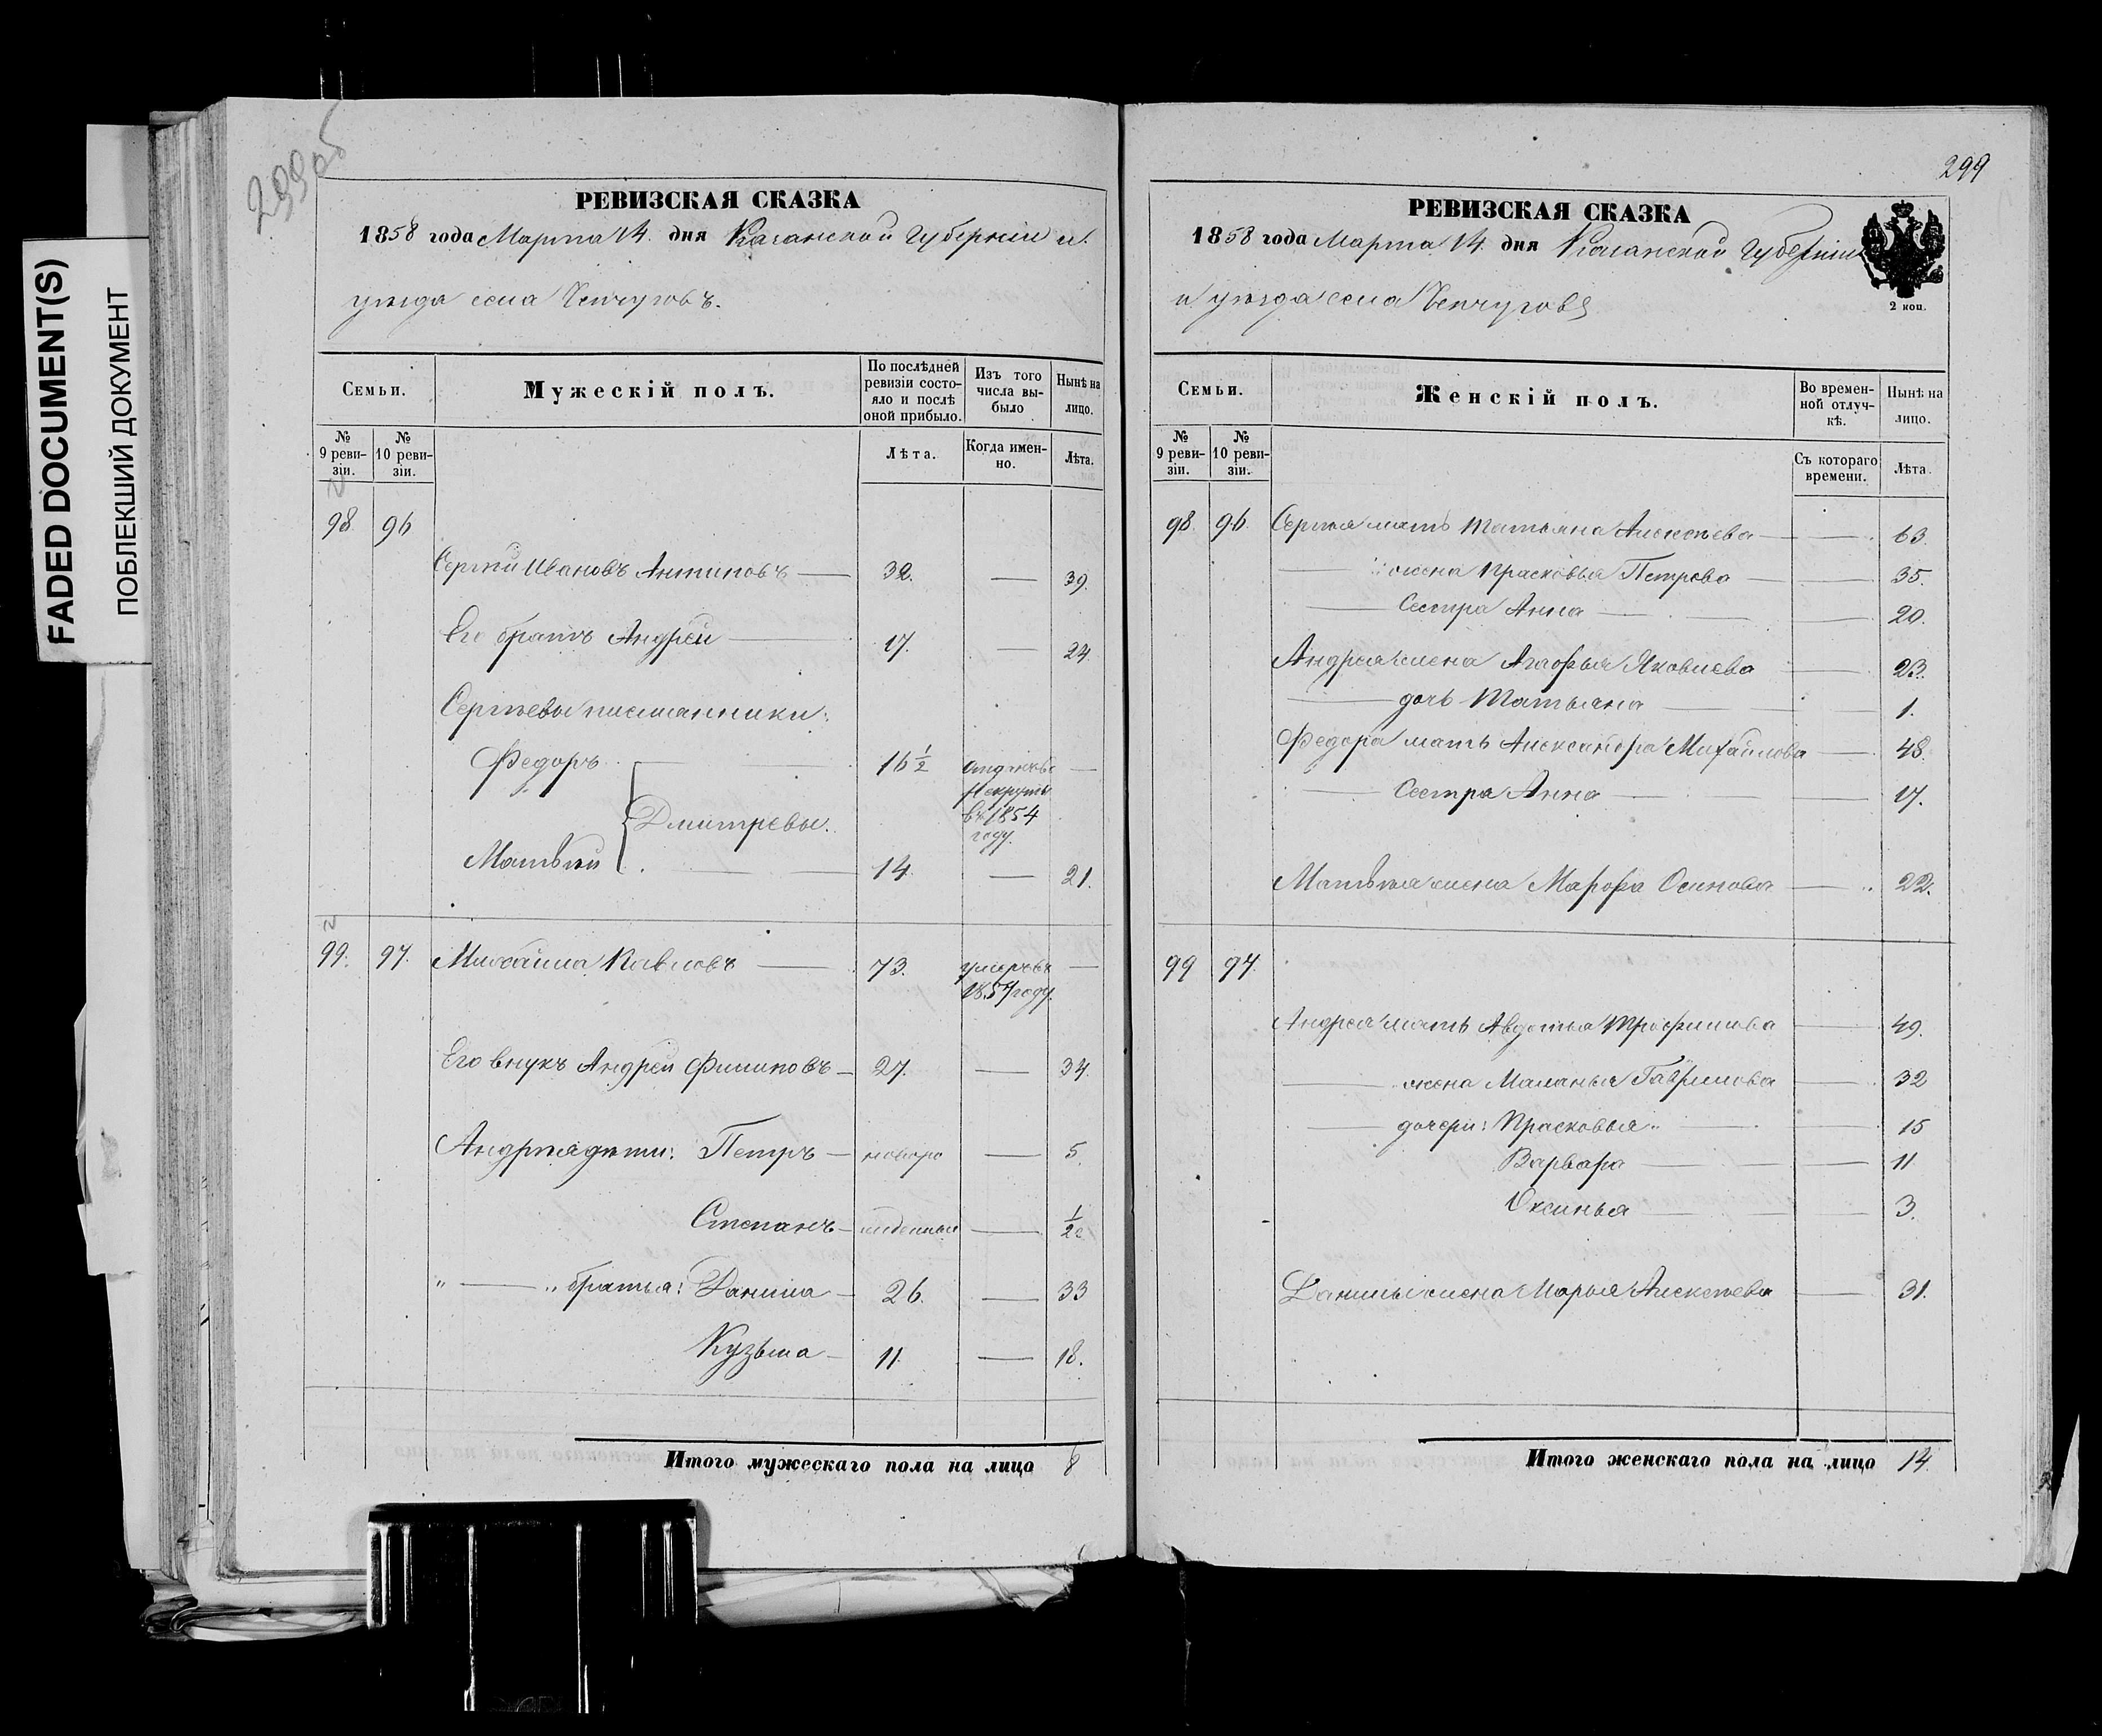 FADED DOCUMENT(S)
ПОБЛЕКШИЙ ДОКУМЕНТ
299об
РЕВИЗСКАЯ СКАЗКА
1858 года Марта 14. дня Казанской Губерніи и
уѣзда села Чепчуговъ.
Семьи.
Мужескій полъ.
По послѣдней ревизіи состояло и послѣ оной прибыло.
Изъ того числа выбыло
Нынѣ на лицо.
№ 9 ревизіи.
№ 10 ревизіи.
Лѣта.
Когда именно.
Лѣта.
98 96
Сергѣй Ивановъ Антиповъ — 32. — 39.
Его братъ Андрей — 17. — 24
Сергѣевы племянники:
Федоръ — 16 1/2 отданъ въ рекруты въ 1854 году. —
Дмитревы.
Матвѣй — 14 — 21.
99. 97. Михайла Павловъ — 73. умеръ въ 1857 году. —
Его внукъ Андрей Филиповъ — 27. — 34
Андрея дѣти: Петръ — новоро — 5.
Степанъ — жденные — 1/2
" — " братья: Данила — 26. — 33
Кузьма — 11. — 18.
Итого мужескаго пола на лицо 8
299
РЕВИЗСКАЯ СКАЗКА
1858 года Марта 14. дня Казанской Губерніи
и уѣзда села Чепчугов
2 коп.
Семьи.
Женскій полъ.
Во временной отлучкѣ.
Нынѣ на лицо.
№ 9 ревизіи.
№ 10 ревизіи.
Съ котораго времени.
Лѣта.
98. 96. Сергѣя мать Татьяна Алексѣева — 63.
— жена Прасковья Петрова — 35.
— Сестра Анна — 20.
Андрея жена Агафья Яковлева — 23.
— дочь Татьяна — 1.
Федора мать Александра Михайлова — 48.
— Сестра Анна — 17.
Матвѣя жена Марфа Осипова — 22.
99 97.
Андрея мать Авдотья Трофимова — 49.
— жена Маланья Гаврилова — 32
— дочери: Прасковья — 15
Варвара — 11
Оксинья — 3.
Данилы жена Марья Алексѣева — 31.
Итого женскаго пола на лицо 14.